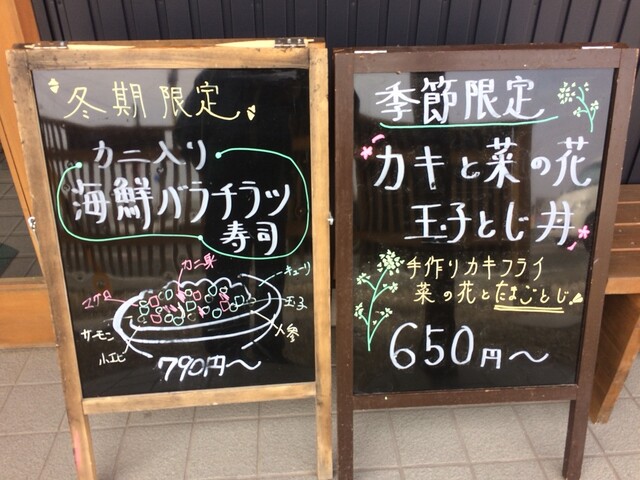 冬期限定
カニ入り
海鮮バラチラシ
寿司
カニ果
キューリ
マグロ
玉子
サーモン
人参
小エビ
790円〜
季節限定
カキと菜の花
玉子とじ丼
手作りカキフライ
菜の花とたまごとじ
650円〜